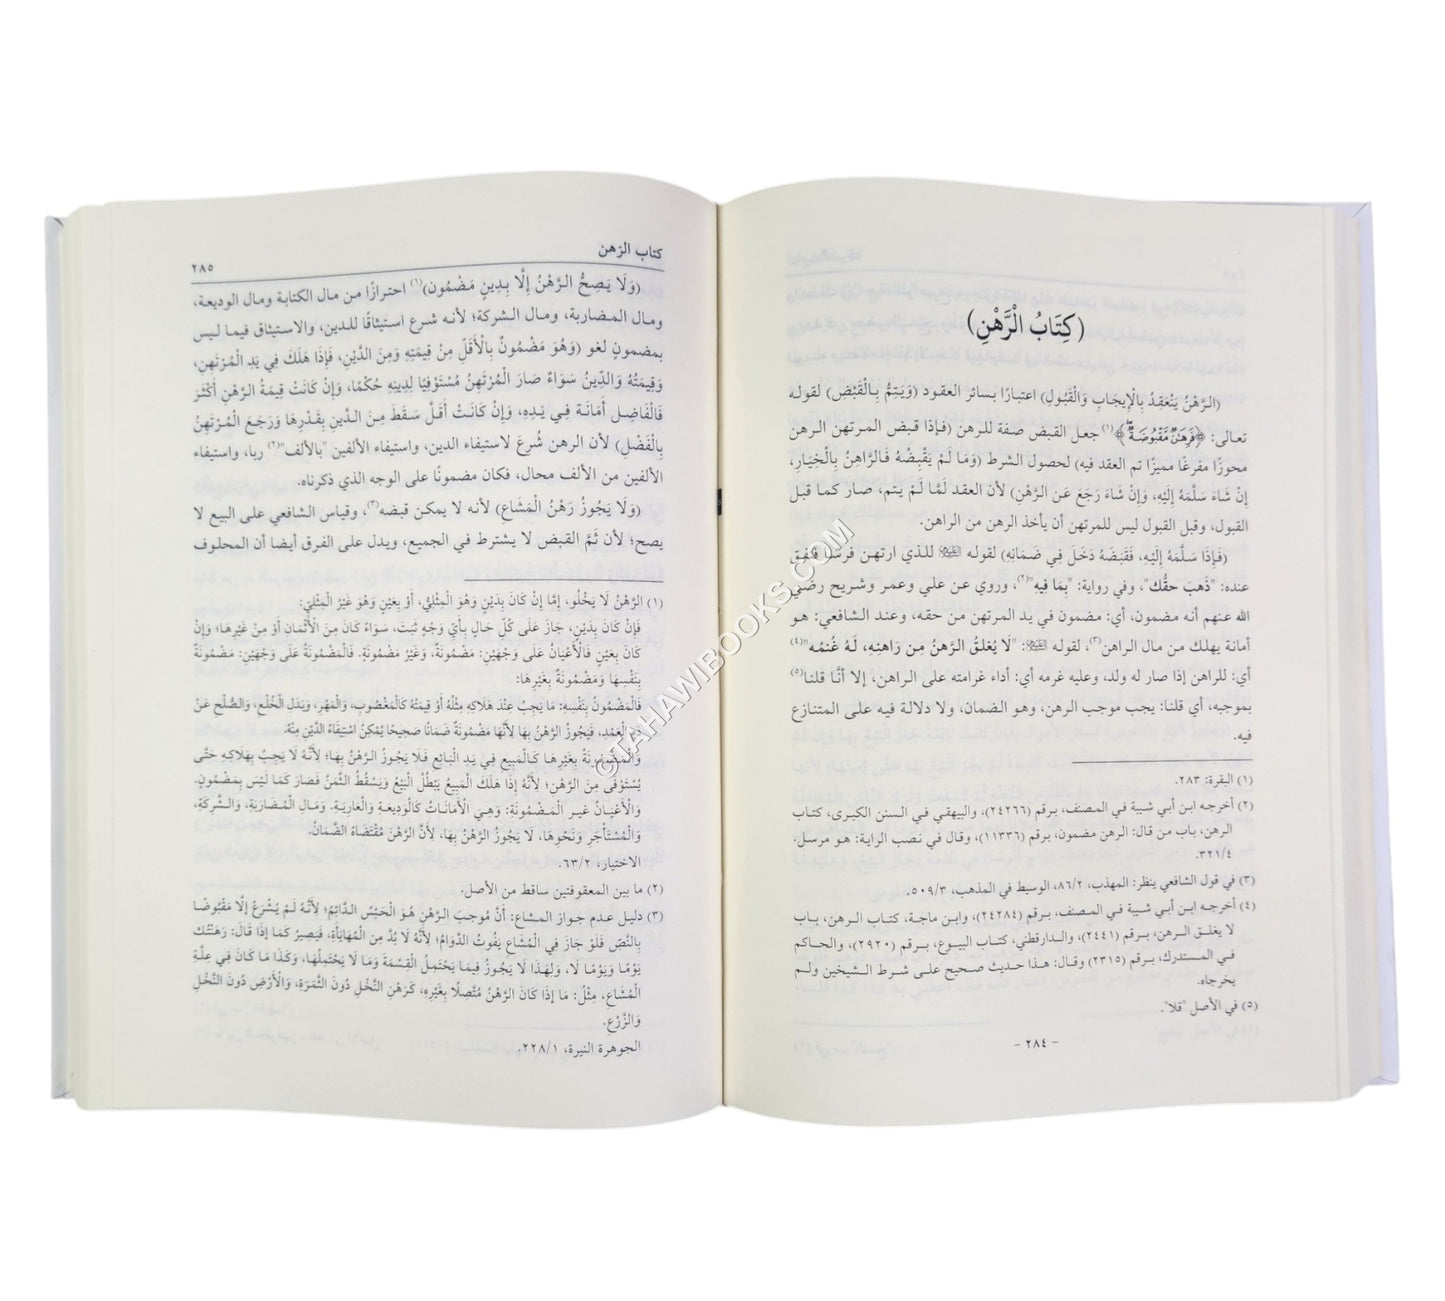 (كِتَابُ الْرَّهْنِ)
(الـرَّهْنُ يَنْعَقِدُ بِالْإِيجَابِ وَالْقَبُولِ) اعتبارًا بسائر العقود (وَيَتِمُّ بِـالْقَبْضِ) لقوله
تعالى: ﴿فَرِهَٰنٌ مَّقْبُوضَةٌ﴾(١) جعل القبض صفة للرهن (فـإذا قبض المرتهن الرهن
محوزًا مفرغًا مميزًا تم العقد فيه) لحصول الشرط (وَمَا لَمْ يَقْبِضْهُ فَـالرَّاهِنُ بِالْخِيَارِ،
إِنْ شَاءَ سَلَّمَهُ إِلَيْهِ، وَإِنْ شَاءَ رَجَعَ عَنِ الرَّهْنِ) لأن العقد لَمَّا لَمْ يتم، صار كما قبل
القبول، وقبل القبول ليس للمرتهن أن يأخذ الرهن من الراهن.
(فَـإِذَا سَلَّمَهُ إِلَيْهِ، فَقَبَضَهُ دَخَلَ فِي ضَمَانِهِ) لقوله ﷺ للذي ارتهن فرسًا فنفق
عنده: "ذَهبَ حقُّك"، وفي رواية: "بِمَا فِيهِ"(٢)، وروي عن علي وعمر وشريح رضي
الله عنهم أنه مضمون، أي: مضمون في يد المرتهن من حقه، وعند الشافعي: هو
أمانة يهلك من مال الراهن(٣)، لقوله ﷺ: "لَا يُغلقُ الـرَّهنُ مِـن رَاهنـِه، لَـهُ غُنمُـه"(٤)
أي: للراهن إذا صار له ولد، وعليه غرمه أي: أداء غرامته على الراهن، إلا أنَّا قلنا(٥)
بموجبه، أي قلنا: يجب موجب الرهن، وهو الضمان، ولا دلالة فيه على المتنازع
فيه.
(١) البقرة: ٢٨٣.
(٢) أخرجه ابن أبي شيبة في المصنف، برقم (٢٤٢٦٦)، والبيهقي في السنن الكبرى، كتاب
الرهن، باب من قال: الرهن مضمون، برقم (١١٣٣٦)، وقال في نصب الراية: هو مرسل،
٣٢١/٤.
(٣) في قول الشافعي ينظر: المهذب، ٨٦/٢، الوسيط في المذهب، ٥٠٩/٣.
(٤) أخرجه ابن أبي شيبة في المصنف، برقم (٢٤٢٨٤)، وابن ماجة، كتاب الرهن، باب
لا يغلق الرهن، برقم (٢٤٤١)، والدارقطني، كتاب البيوع، برقم (٢٩٢٠)، والحاكم
في المستدرك، برقم (٢٣١٥) وقال: هذا حديث صحيح على شرط الشيخين ولم
يخرجاه.
(٥) في الأصل "قلا".
- ٢٨٤ -
كتاب الرّهن
٢٨٥
(وَلَا يَصِحُّ الرَّهْنُ إِلَّا بِدِينٍ مَضْمُون)(١) احترازًا من مال الكتابة ومال الوديعة،
ومال المضاربة، ومال الشركة؛ لأنه شرع استيثاقًا للدين، والاستيثاق فيما ليس
بمضمونٍ لغو (وَهُوَ مَضْمُونٌ بِالْأَقَلِّ مِنْ قِيمَتِهِ وَمِنَ الدَّيْنِ، فَإِذَا هَلَكَ فِي يَدِ الْمُرْتَهِنِ،
وَقِيمَتُهُ وَالدِّينُ سَوَاءٌ صَارَ الْمُرْتَهِنُ مُسْتَوْفِيًا لِدِينِهِ حُكْمًا، وَإِنْ كَانَتْ قِيمَةُ الرَّهْنِ أَكْثَرَ
فَالْفَاضِل أَمَانَة فِي يَدِهِ، وَإِنْ كَانَتْ أَقَلَّ سَقَطَ مِنَ الدَّينِ بِقَدْرِهَا وَرَجَعَ الْمُرْتَهِنُ
بِالْفَضْلِ) لأن الرهن شُرِعَ لاستيفاء الدين، واستيفاء الألفين "بالألف"(٢) ربا، واستيفاء
الألفين من الألف محال، فكان مضمونًا على الوجه الذي ذكرناه.
(وَلَا يَجُوزُ رَهْنُ الْمَشَاعِ) لأنه لا يمكن قبضه(٣)، وقياس الشافعي على البيع لا
يصح؛ لأن ثَمَّ القبض لا يشترط في الجميع، ويدل على الفرق أيضا أن المحلوف
(١) الرَّهْنُ لَا يَخْلُو، إِمَّا إِنْ كَانَ بِدَيْنٍ وَهُوَ الْمِثْلِيُّ، أَوْ بِعَيْنٍ وَهُوَ غَيْرُ الْمِثْلِيِّ:
فَإِنْ كَانَ بِدَيْنٍ، جَازَ عَلَى كُلِّ حَالٍ بِأَيِّ وَجْهٍ ثَبَتَ، سَوَاءٌ كَانَ مِنَ الْأَثْمَانِ أَوْ مِنْ غَيْرِهَا؛ وَإِنْ
كَانَ بِعَيْنٍ فَالْأَعْيَانُ عَلَى وَجْهَيْنِ: مَضْمُونَةٌ، وَغَيْرُ مَضْمُونَةٍ. فَالْمَضْمُونَةُ عَلَى وَجْهَيْنِ: مَضْمُونَةٌ
بِنَفْسِهَا وَمَضْمُونَةٌ بِغَيْرِهَا:
فَالْمَضْمُونُ بِنَفْسِهِ: مَا يَجِبُ عِنْدَ هَلَاكِهِ مِثْلُهُ أَوْ قِيمَتُهُ كَالْمَغْصُوبِ، وَالْمَهْرِ، وَبَدَلِ الْخُلْعِ، وَالصُّلْحِ عَنْ
دَمِ الْعَمْدِ، فَيَجُوزُ الرَّهْنُ بِهَا لِأَنَّهَا مَضْمُونَةٌ ضَمَانًا صَحِيحًا يُمْكِنُ اسْتِيفَاءُ الدَّيْنِ مِنْهُ.
وَالْمَضْمُونَةُ بِغَيْرِهَا كَالْمَبِيعِ فِي يَدِ الْبَائِعِ فَلَا يَجُوزُ الرَّهْنُ بِهَا؛ لِأَنَّهُ لَا يَجِبُ بِهَلَاكِهِ حَتَّى
يُسْتَوْفَى مِنَ الرَّهْنِ؛ لِأَنَّهُ إِذَا هَلَكَ الْمَبِيعُ يَبْطُلُ الْبَيْعُ وَيَسْقُطُ الثَّمَنُ فَصَارَ كَمَا لَيْسَ بِمَضْمُونٍ.
وَالْأَعْيَانُ غَيرِ الْمَضْمُونَةِ: وَهِيَ الْأَمَانَاتُ كَالْوَدِيعَةِ وَالْعَارِيَةِ. وَمَالِ الْمُضَارَبَةِ، وَالشَّرِكَةِ،
وَالْمُسْتَأْجَرِ وَنَحْوِهَا، لَا يَجُوزُ الرَّهْنُ بِهَا، لِأَنَّ الرَّهْنَ مُقْتَضَاهُ الضَّمَانُ.
الاختيار، ٦٣/٢.
(٢) ما بين المعقوفتين ساقط من الأصل.
(٣) دليل عدم جواز المشاع: أَنَّ مُوجَبَ الرَّهْنِ هُوَ الْحَبْسُ الدَّائِمُ؛ لِأَنَّهُ لَمْ يُشْرَعْ إِلَّا مَقْبُوضًا
بِالنَّصِّ فَلَوْ جَازَ فِي الْمُشَاعِ يَفُوتُ الدَّوَامُ؛ لِأَنَّهُ لَا بُدَّ مِنَ الْمُهَايَأَةِ، فَيَصِيرُ كَمَا إذَا قَالَ: رَهَنْتُك
يَوْمًا وَيَوْمًا لَا، وَلِهَذَا لَا يَجُوزُ فِيمَا يَحْتَمِلُ الْقِسْمَةَ وَمَا لَا يَحْتَمِلُهَا، وَكَذَا مَا كَانَ فِي عِلَّةِ
الْمُشَاعِ، مِثْلُ: مَا إذَا كَانَ الرَّهْنُ مُتَّصِلًا بِغَيْرِهِ، كَرَهْنِ النَّخْلِ دُونَ الثَّمَرَةِ، وَالْأَرْضِ دُونَ النَّخْلِ
وَالزَّرْعِ.
الجوهرة النيرة، ٢٢٨/١.
©TAHAWIBOOKS.COM